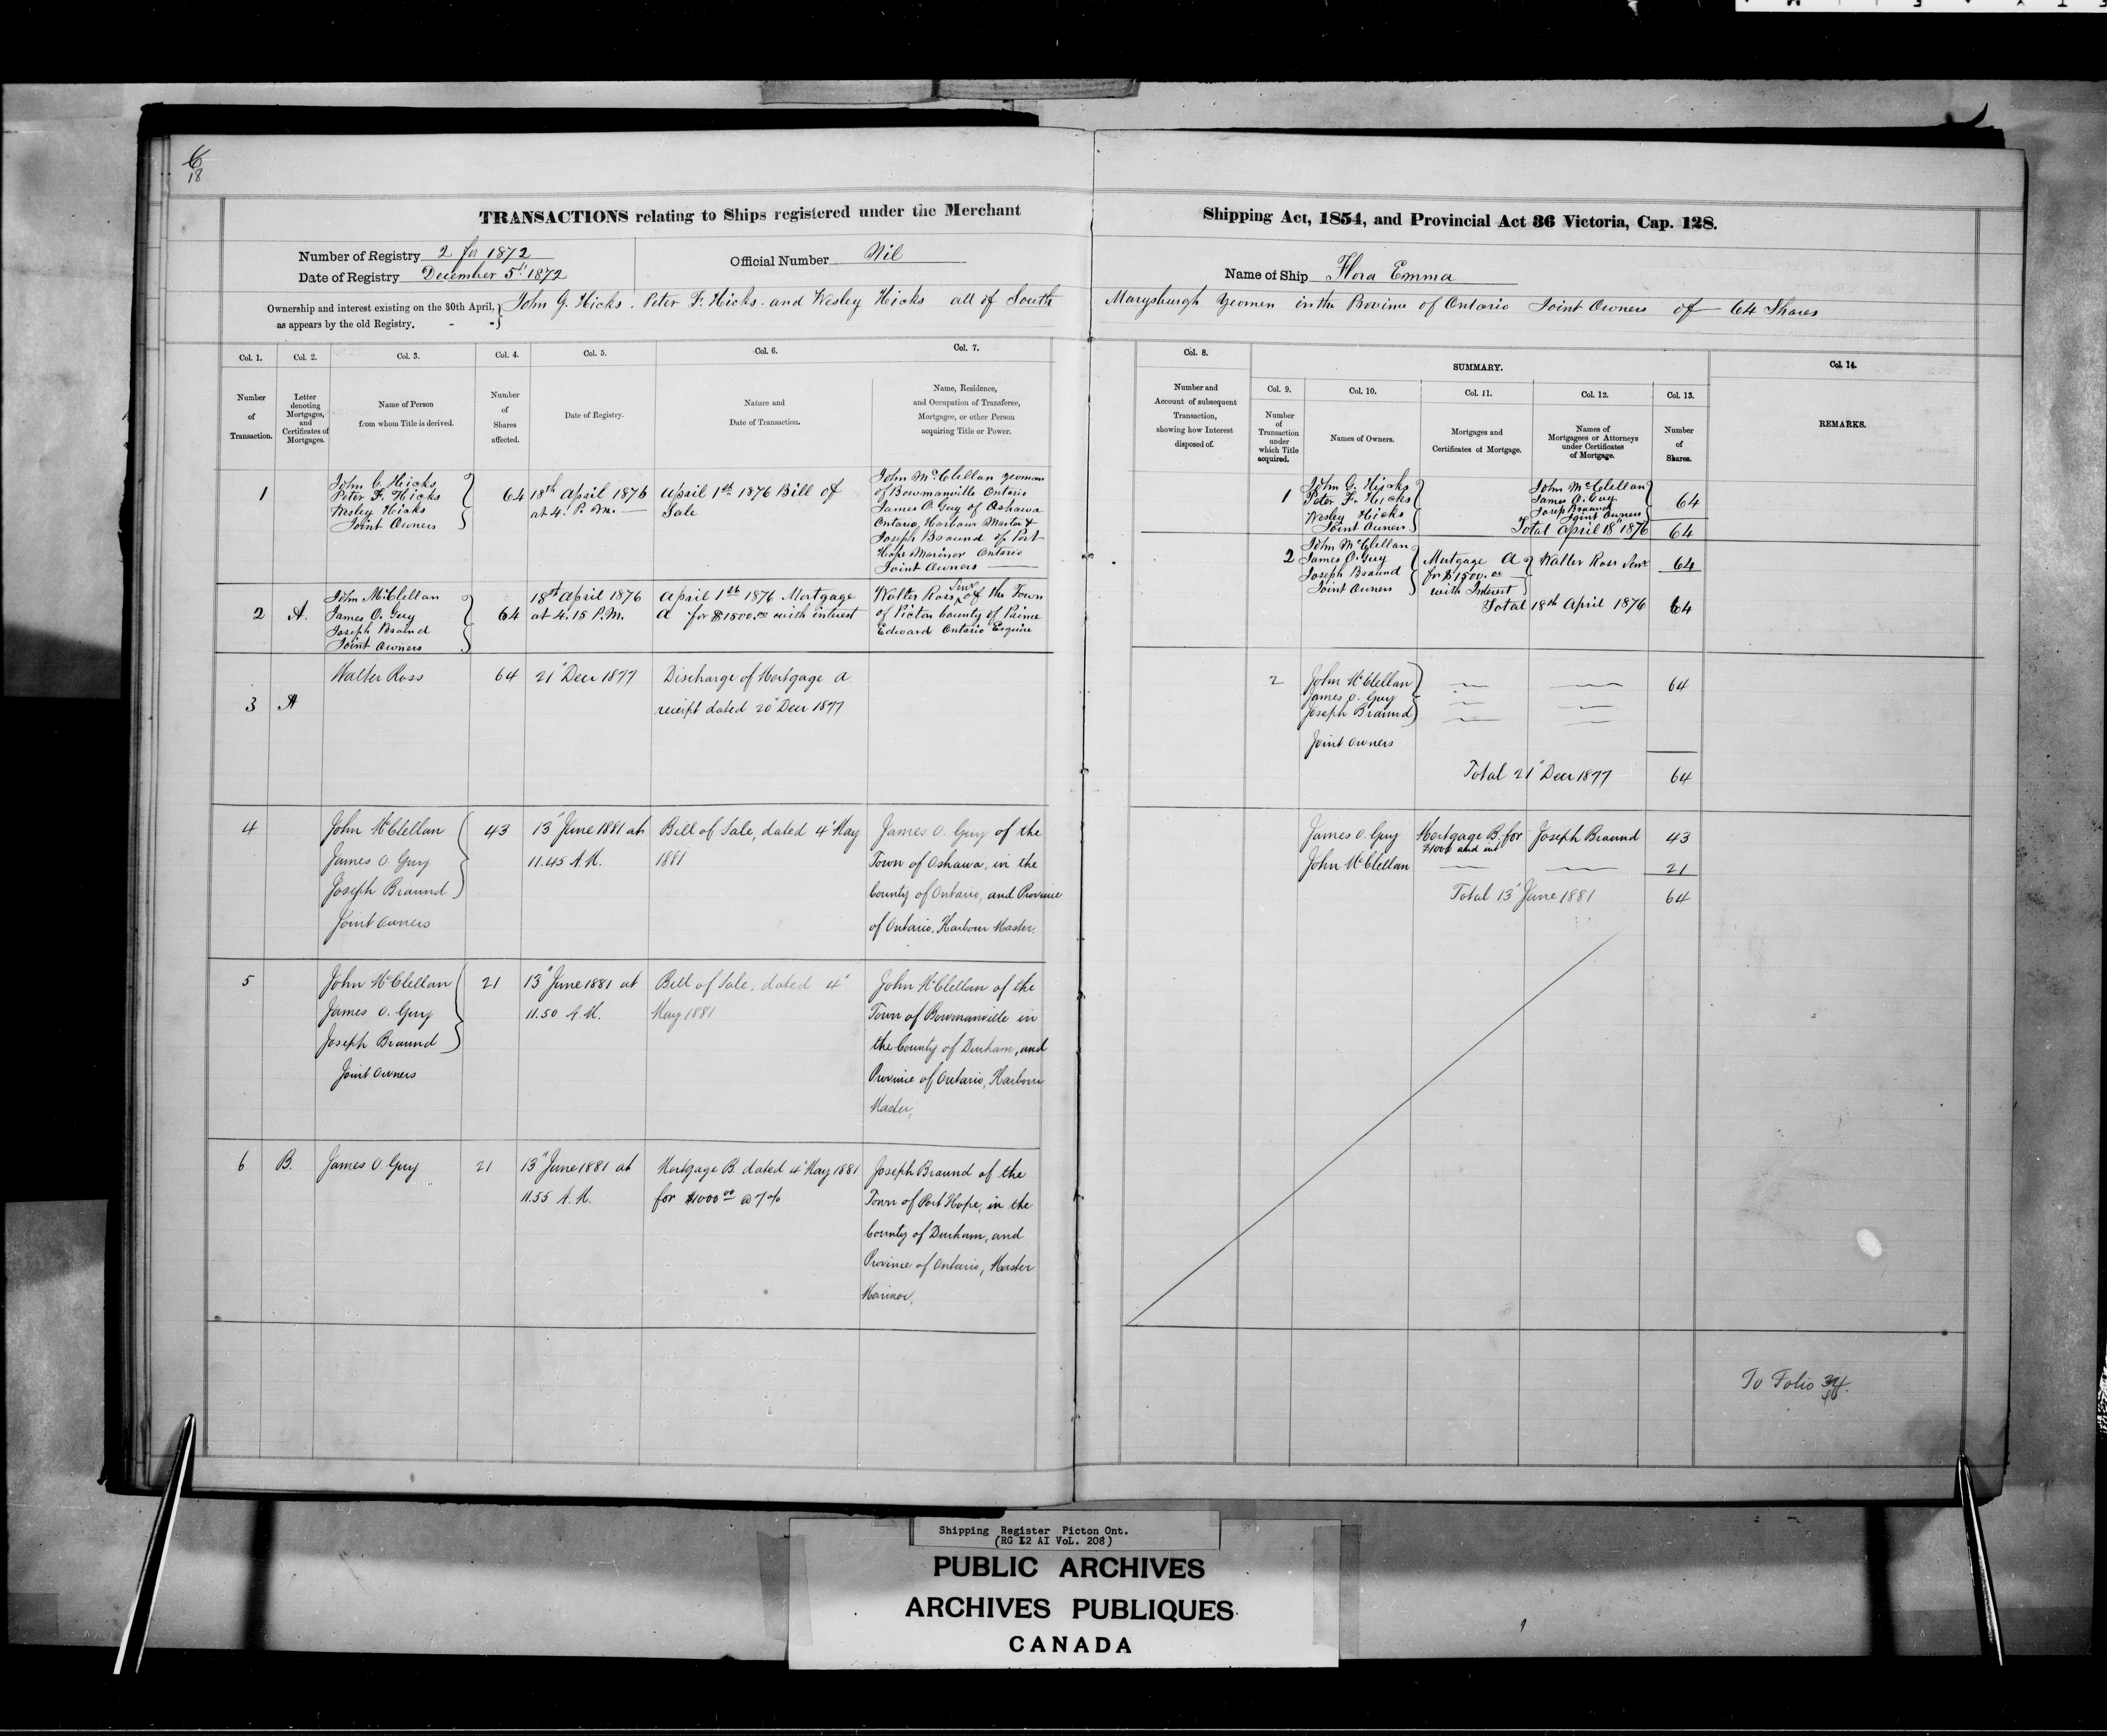 6
18
TRANSACTIONS relating to Ships registered under the Merchant Shipping Act, 1854, and Provincial Act 36 Victoria, Cap. 128.
Number of Registry 2 for 1872
Date of Registry December 5th 1872
Official Number Nil
Name of Ship Flora Emma
Ownership and interest existing on the 30th April, as appears by the old Registry. - - } John G. Hicks. Peter F. Hicks. and Wesley Hicks all of South Marysburgh Yeomen in the Province of Ontario Joint Owners of 64 Shares
Col. 1. Col. 2. Col. 3. Col. 4. Col. 5. Col. 6. Col. 7.
Number of Transaction.
Letter denoting Mortgages, and Certificates of Mortgages.
Name of Person from whom Title is derived.
Number of Shares affected.
Date of Registry.
Nature and Date of Transaction.
Name, Residence, and Occupation of Transferee, Mortgagee, or other Person acquiring Title or Power.
1
John G. Hicks
Peter F. Hicks
Wesley Hicks
Joint Owners
64
18th April 1876
at 4. P.M.
April 1st 1876 Bill of
Sale
John McClellan yeoman
of Bowmanville Ontario
James O. Guy of Oshawa
Ontario, Harbour Master &
Joseph Braund of Port
Hope Mariner Ontario
Joint Owners
2 A.
John McClellan
James O. Guy
Joseph Braund
Joint Owners
64
18th April 1876
at 4.15 P.M.
April 1st 1876 Mortgage
A for $1500.00 with interest
Walter Ross Senr of the Town
of Picton County of Prince
Edward Ontario Esquire
3 A
Walter Ross
64
21" Decr 1877
Discharge of Mortgage A
receipt dated 20" Decr 1877
4
John McClellan
James O. Guy
Joseph Braund
Joint Owners
43
13" June 1881 at
11.45 A.M.
Bill of Sale, dated 4" May
1881
James O. Guy of the
Town of Oshawa, in the
County of Ontario, and Province
of Ontario, Harbour Master.
5
John McClellan
James O. Guy
Joseph Braund
Joint Owners
21
13" June 1881 at
11.50 A.M.
Bill of Sale, dated 4"
May 1881
John McClellan of the
Town of Bowmanville in
the County of Durham, and
Province of Ontario, Harbour
Master,
6 B.
James O. Guy
21
13" June 1881 at
11.55 A.M.
Mortgage B. dated 4" May 1881
for $1000 00 @ 7 %
Joseph Braund of the
Town of Port Hope, in the
County of Durham, and
Province of Ontario, Master
Mariner.
Col. 8.
Number and Account of subsequent Transaction, showing how Interest disposed of.
SUMMARY.
Col. 9. Col. 10. Col. 11. Col. 12. Col. 13.
Number of Transaction under which Title acquired.
Names of Owners.
Mortgages and Certificates of Mortgage.
Names of Mortgagees or Attorneys under Certificates of Mortgage.
Number of Shares.
Col. 14.
REMARKS.
1
John G. Hicks
Peter F. Hicks
Wesley Hicks
Joint Owners
John McClellan
James O. Guy
Joseph Braund
Joint Owners
64
Total April 18" 1876 64
2
John McClellan
James O. Guy
Joseph Braund
Joint Owners
Mortgage A
for $1500.00
with Interest
Walter Ross Senr
64
Total 18th April 1876 64
2
John McClellan
James O. Guy
Joseph Braund
Joint Owners
64
Total 21" Decr 1877 64
James O. Guy
Mortgage B. for
$1000 and int
Joseph Braund
43
John McClellan
21
Total 13" June 1881 64
To Folio
Shipping Register Picton Ont.
(RG 12 AI Vol. 208)
PUBLIC ARCHIVES
ARCHIVES PUBLIQUES
CANADA